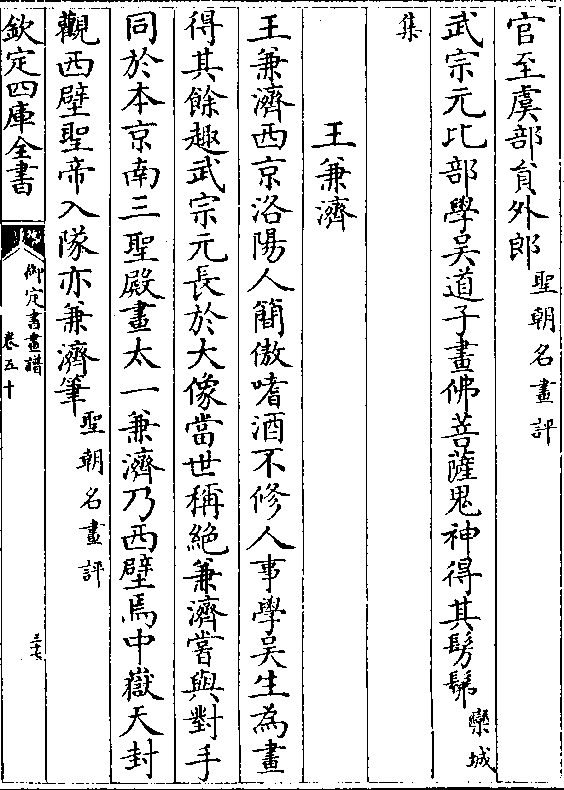 官至虞部員外郎聖朝名畫評
武宗元比部學吳道子畫佛菩薩鬼神得其髣髴欒城
集
王兼濟
王兼濟西京洛陽人簡傲嗜酒不修人事學吳生為畫
得其餘趣武宗元長於大像當世稱絶兼濟嘗與對手
同於本京南三聖殿畫太一兼濟乃西壁焉中嶽天封
觀西壁聖帝入隊亦兼濟筆聖朝名畫評
欽定四庫全書
御定書畫譜
卷五十
三七